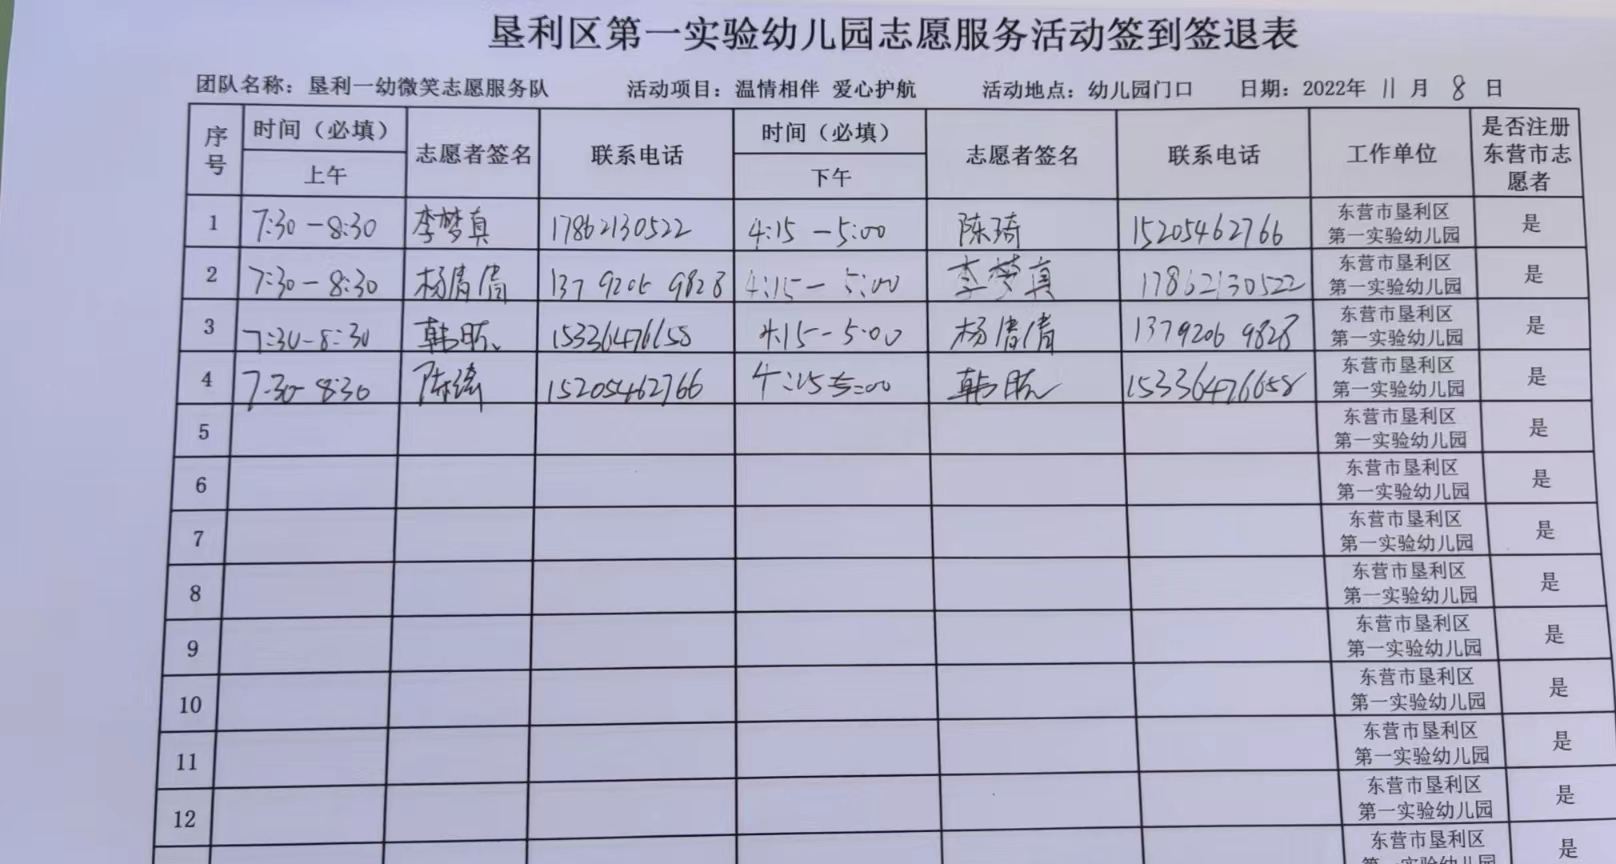 垦利区第一实验幼儿园志愿服务活动签到签退表
团队名称：垦利一幼微笑志愿服务队 活动项目：温情相伴 爱心护航 活动地点：幼儿园门口 日期：2022年 11 月 8 日
序号 时间（必填） 上午 志愿者签名 联系电话 时间（必填） 下午 志愿者签名 联系电话 工作单位 是否注册东营市志愿者
1 7:30-8:30 李梦真 17862130522 4:15-5:00 陈琦 15205462766 东营市垦利区第一实验幼儿园 是
2 7:30-8:30 杨倩倩 137 9206 9828 4:15-5:00 李梦真 17862130522 东营市垦利区第一实验幼儿园 是
3 7:30-8:30 韩 15336476658 4:15-5:00 杨倩倩 1379206 9828 东营市垦利区第一实验幼儿园 是
4 7:30-8:30 陈琦 15205462766 4:15 5:00 韩 15336476658 东营市垦利区第一实验幼儿园 是
5 东营市垦利区第一实验幼儿园 是
6 东营市垦利区第一实验幼儿园 是
7 东营市垦利区第一实验幼儿园 是
8 东营市垦利区第一实验幼儿园 是
9 东营市垦利区第一实验幼儿园 是
10 东营市垦利区第一实验幼儿园 是
11 东营市垦利区第一实验幼儿园 是
12 东营市垦利区第一实验幼儿园 是
东营市垦利区第一实验幼儿园 是